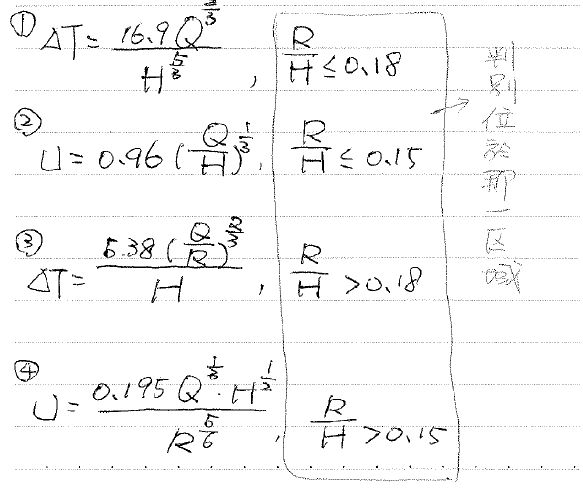 ① ΔT = 16.9 Q^(2/3) / H^(5/3) , R/H ≤ 0.18
② U = 0.96 (Q/H)^(1/3) , R/H ≤ 0.15
③ ΔT = 5.38 (Q/R)^(2/3) / H , R/H > 0.18
④ U = 0.195 Q^(1/3) · H^(1/2) / R^(5/6) , R/H > 0.15
→ 判別位於那一区域